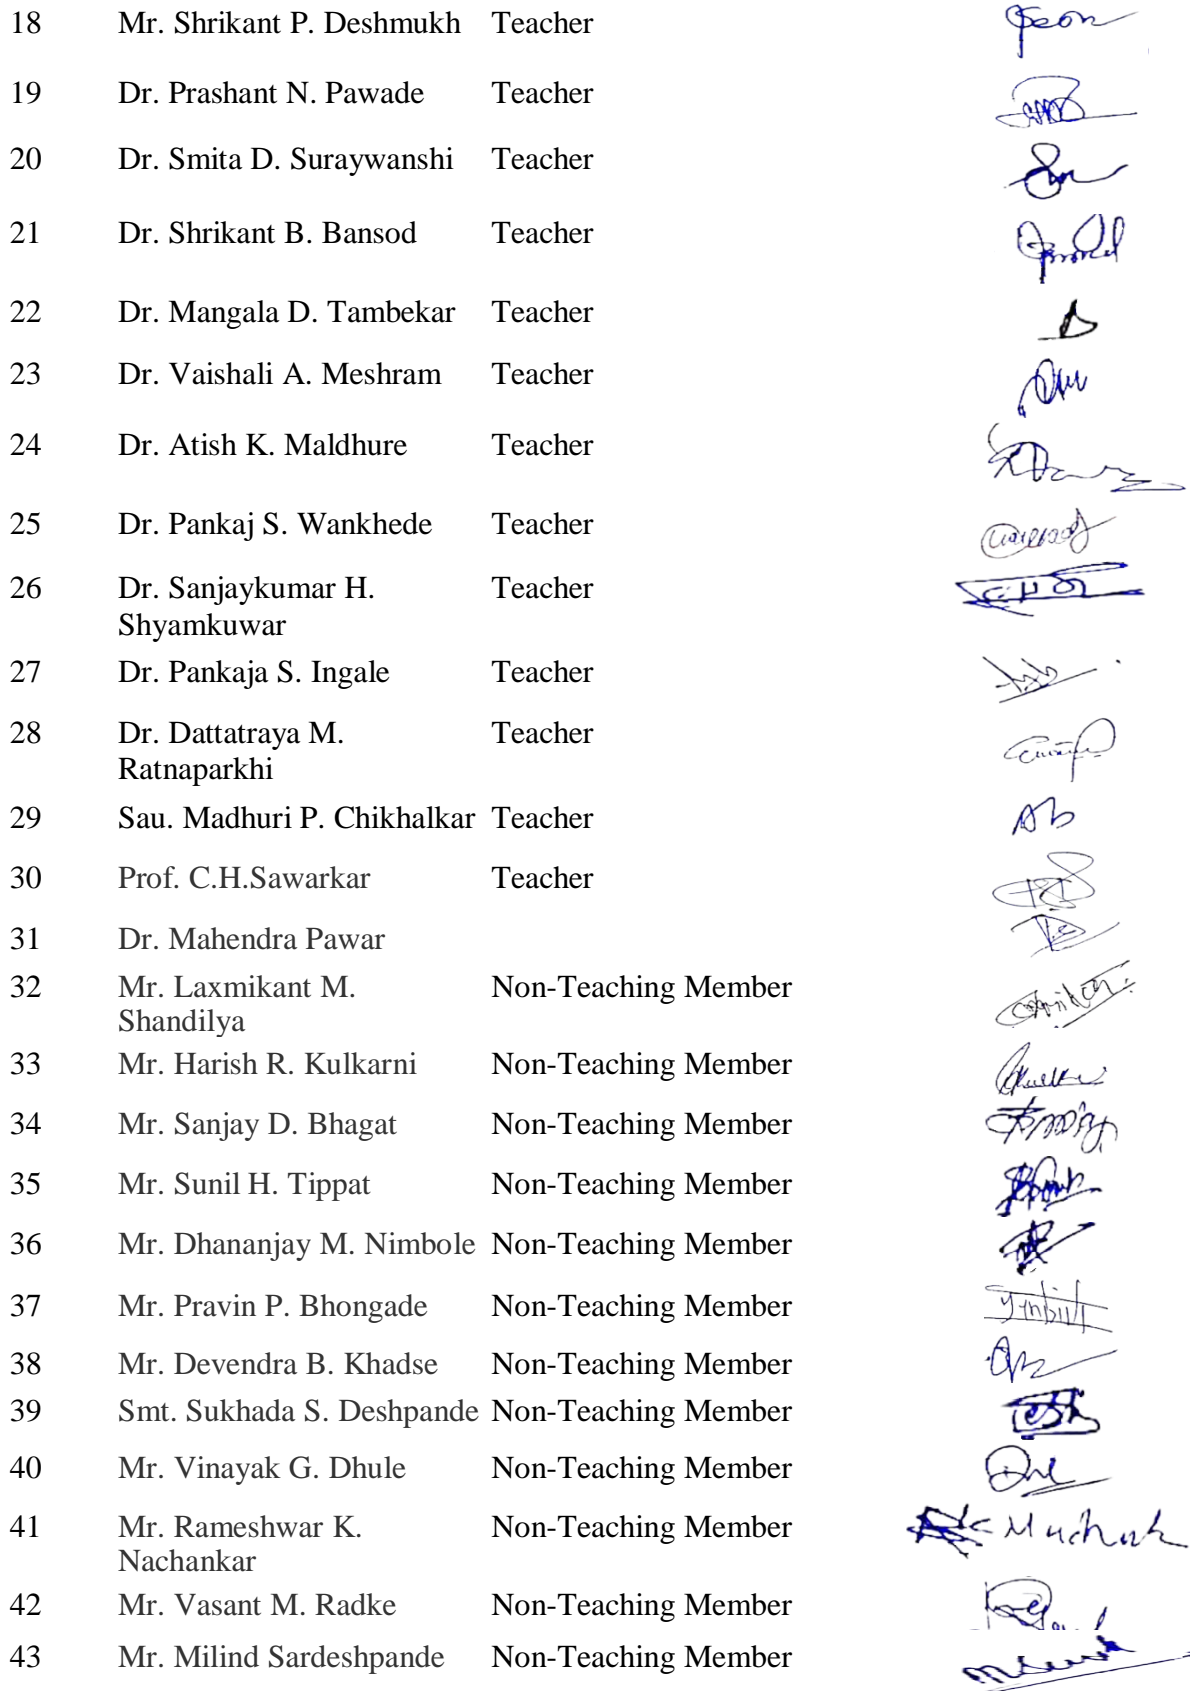 18 Mr. Shrikant P. Deshmukh Teacher
19 Dr. Prashant N. Pawade Teacher
20 Dr. Smita D. Suraywanshi Teacher
21 Dr. Shrikant B. Bansod Teacher
22 Dr. Mangala D. Tambekar Teacher
23 Dr. Vaishali A. Meshram Teacher
24 Dr. Atish K. Maldhure Teacher
25 Dr. Pankaj S. Wankhede Teacher
26 Dr. Sanjaykumar H. Teacher
Shyamkuwar
27 Dr. Pankaja S. Ingale Teacher
28 Dr. Dattatraya M. Teacher
Ratnaparkhi
29 Sau. Madhuri P. Chikhalkar Teacher
30 Prof. C.H.Sawarkar Teacher
31 Dr. Mahendra Pawar
32 Mr. Laxmikant M. Non-Teaching Member
Shandilya
33 Mr. Harish R. Kulkarni Non-Teaching Member
34 Mr. Sanjay D. Bhagat Non-Teaching Member
35 Mr. Sunil H. Tippat Non-Teaching Member
36 Mr. Dhananjay M. Nimbole Non-Teaching Member
37 Mr. Pravin P. Bhongade Non-Teaching Member
38 Mr. Devendra B. Khadse Non-Teaching Member
39 Smt. Sukhada S. Deshpande Non-Teaching Member
40 Mr. Vinayak G. Dhule Non-Teaching Member
41 Mr. Rameshwar K. Non-Teaching Member
Nachankar
42 Mr. Vasant M. Radke Non-Teaching Member
43 Mr. Milind Sardeshpande Non-Teaching Member